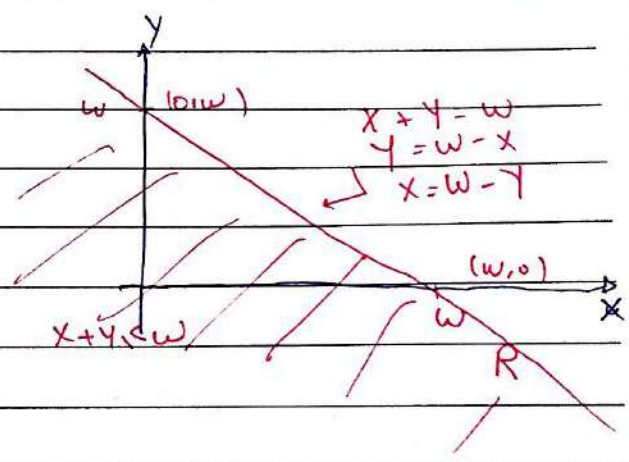 Y
w (0,w)
X + Y = w
Y = w - X
X = w - Y
(w,0)
X
X+Y ≤ w
w
R